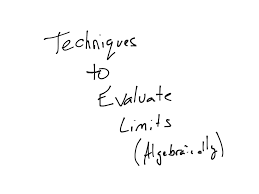 Techniques
to
Evaluate
Limits
(Algebraically)